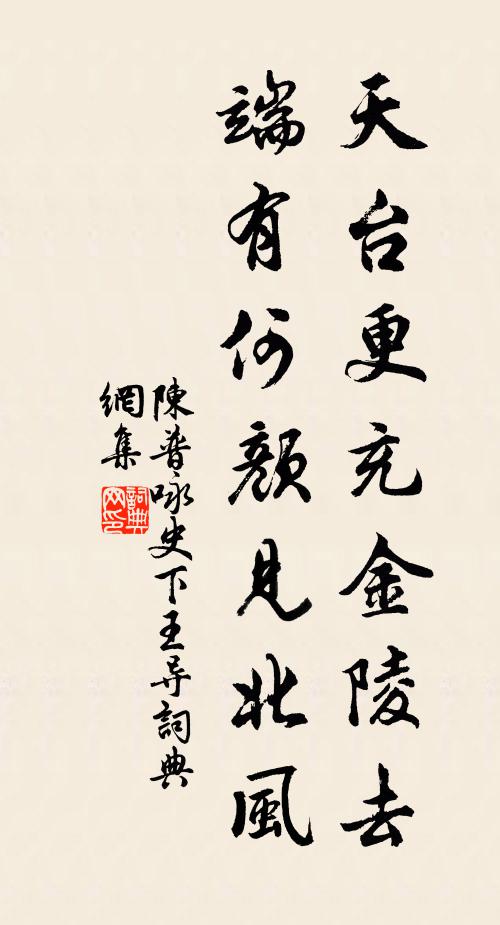 天台更充金陵去
端有何顏見北風
陳普咏史下王导詞典
網集
詞典
网印